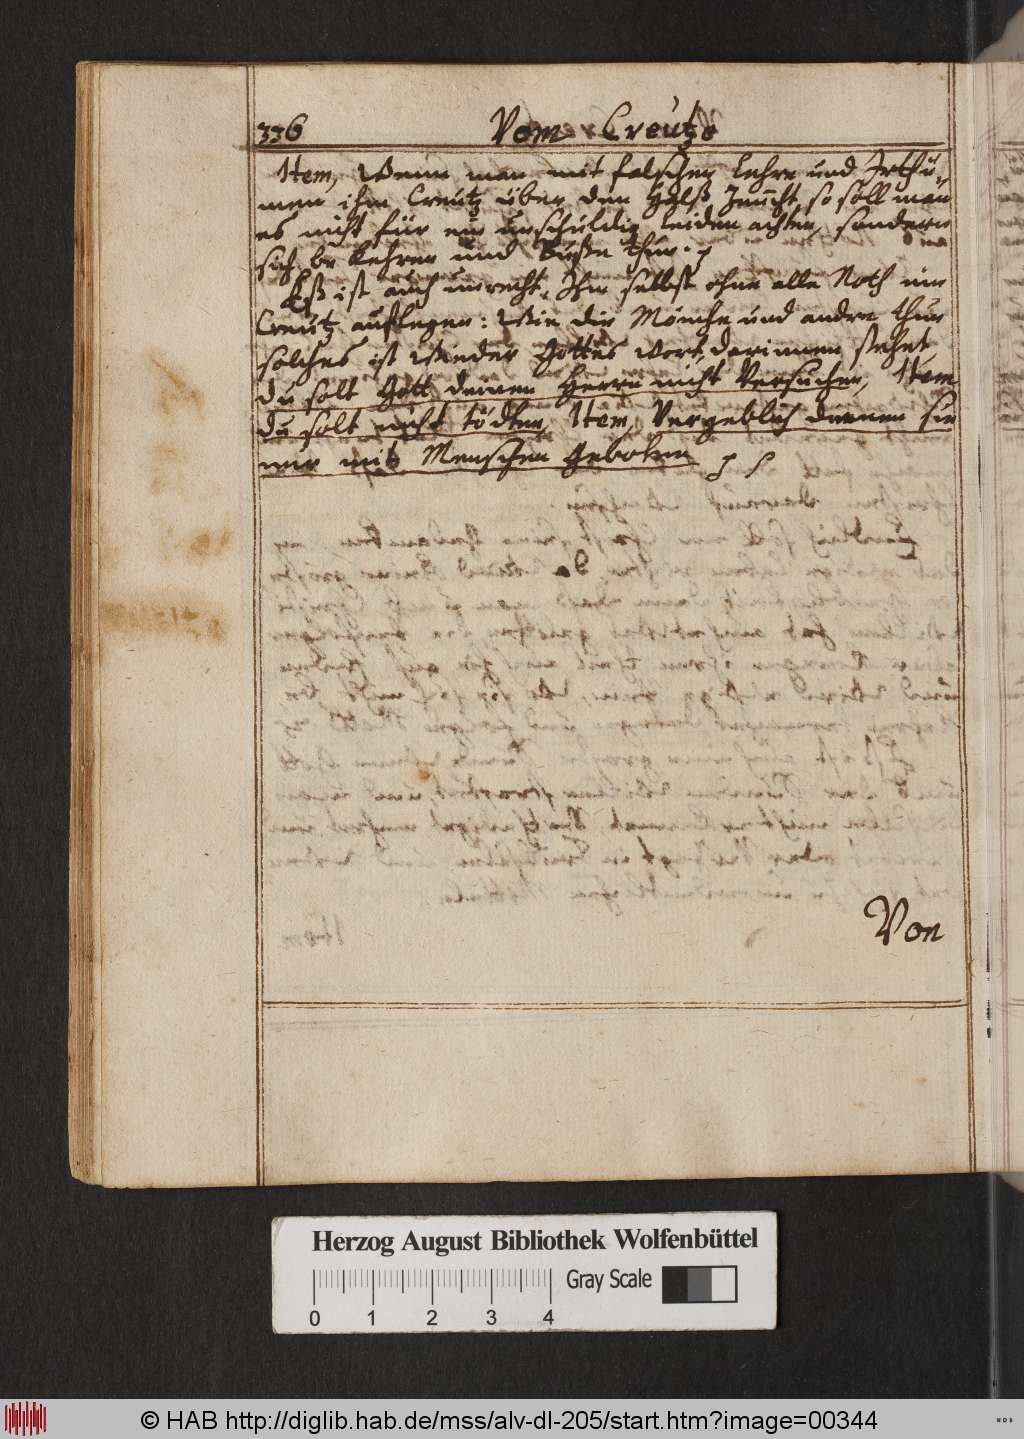 336 Vom Creütze
Item, Wenn man mit falscher Lehre und Irthü-
men ihm Creütz über den Halß zeücht, so soll man
es nicht für ein unschuldig leiden achten, sondern
sich be kehren und Buße thun.
Eß ist auch unrecht, Ihm selbst ohne alle Noth ein
Creütz aufflegen: Wie die Mönche und andre thun
solches ist Wieder Gottes wort, darinnen stehet
du solt Gott deinen Herrn nicht Versuchen, Item
du solt nicht tödten, Item, Vergeblich dienen sie
mir mit Menschen Geboten
Von
Herzog August Bibliothek Wolfenbüttel
Gray Scale
0 1 2 3 4
© HAB http://diglib.hab.de/mss/alv-dl-205/start.htm?image=00344